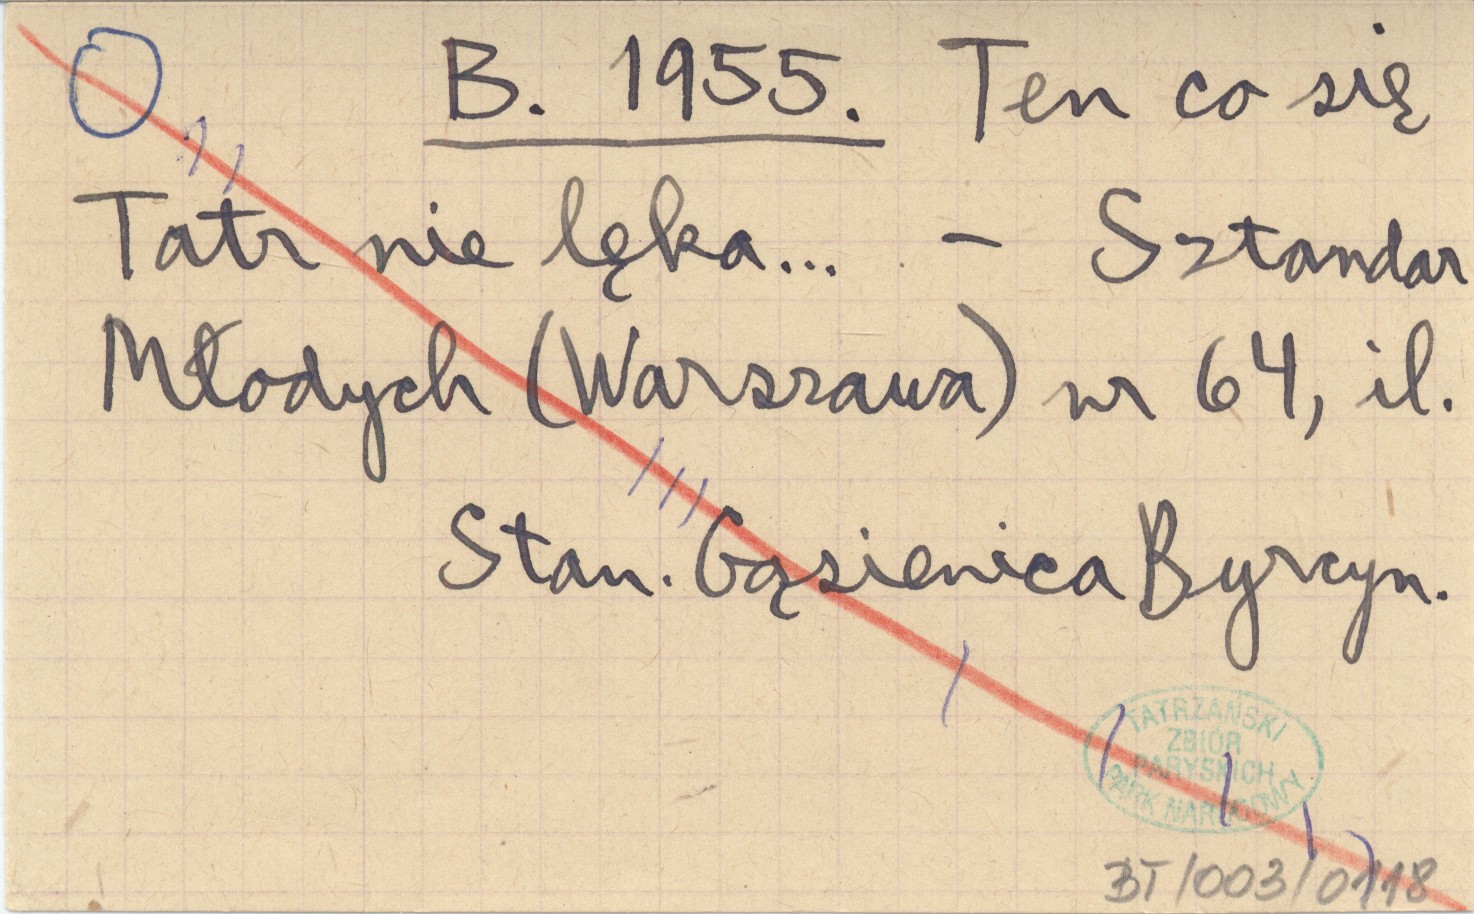 B. 1955. Ten co się
Tatr nie lęka... – Sztandar
Młodych (Warszawa) nr 64, il.
Stan. Gąsienica Byrcyn.
TATRZAŃSKI
ZBIÓR
PARYSKICH
PARK NARODOWY
BT/003/0118